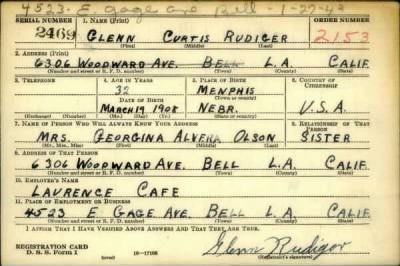 4523 - E Gage ave Bell - 1-27-43
SERIAL NUMBER 1. NAME (Print) ORDER NUMBER
2469 GLENN CURTIS RUDIGER 2153
(First) (Middle) (Last)
2. ADDRESS (Print)
6306 WOODWARD AVE. BELL L.A. CALIF.
(Number and street or R. F. D. number) (Town) (County) (State)
3. TELEPHONE 4. AGE IN YEARS 5. PLACE OF BIRTH 6. COUNTRY OF CITIZENSHIP
32 MEMPHIS
DATE OF BIRTH (Town or county)
MARCH 19 1908 NEBR. U.S.A.
(Exchange) (Number) (Mo.) (Day) (Yr.) (State or country)
7. NAME OF PERSON WHO WILL ALWAYS KNOW YOUR ADDRESS 8. RELATIONSHIP OF THAT PERSON
MRS. GEORGINA ALVERA OLSON SISTER
(Mr., Mrs., Miss) (First) (Middle) (Last)
9. ADDRESS OF THAT PERSON
6306 WOODWARD AVE. BELL L.A. CALIF.
(Number and street or R. F. D. number) (Town) (County) (State)
10. EMPLOYER'S NAME
LAURENCE CAFE
11. PLACE OF EMPLOYMENT OR BUSINESS
4523 E. GAGE AVE. BELL L.A. CALIF.
(Number and street or R. F. D. number) (Town) (County) (State)
I AFFIRM THAT I HAVE VERIFIED ABOVE ANSWERS AND THAT THEY ARE TRUE.
REGISTRATION CARD
D. S. S. Form 1 16-17105 Glenn Rudiger
(Registrant's signature)